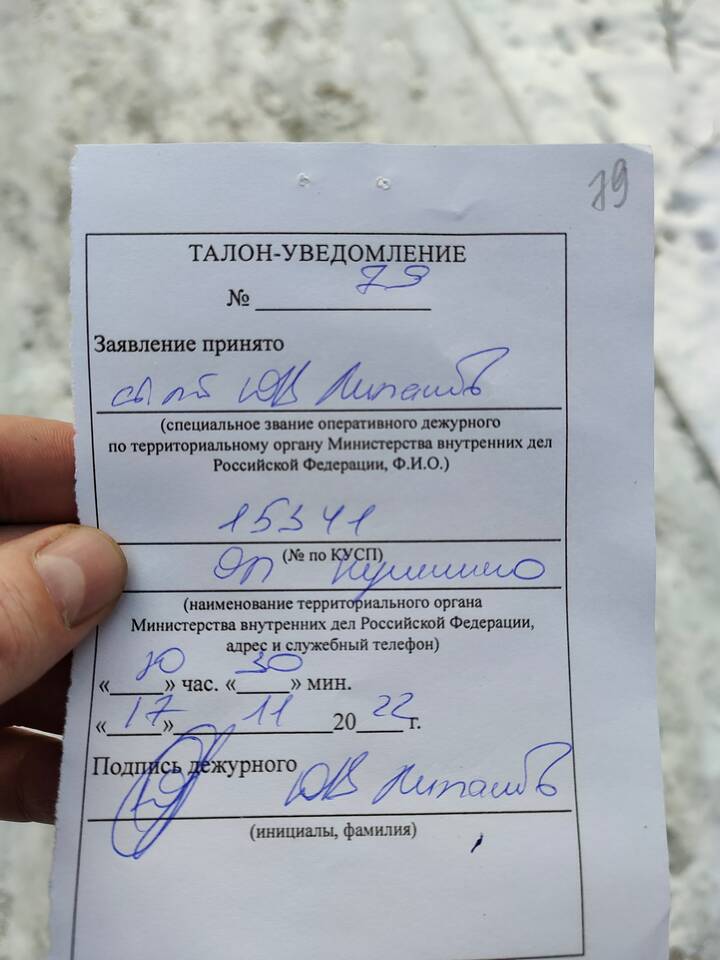 79
ТАЛОН-УВЕДОМЛЕНИЕ
№ 79
Заявление принято
ЮВ
(специальное звание оперативного дежурного
по территориальному органу Министерства внутренних дел
Российской Федерации, Ф.И.О.)
15341
(№ по КУСП)
ОП
(наименование территориального органа
Министерства внутренних дел Российской Федерации,
адрес и служебный телефон)
« » час. «30» мин.
«17» 11 2022 г.
Подпись дежурного ЮВ
(инициалы, фамилия)